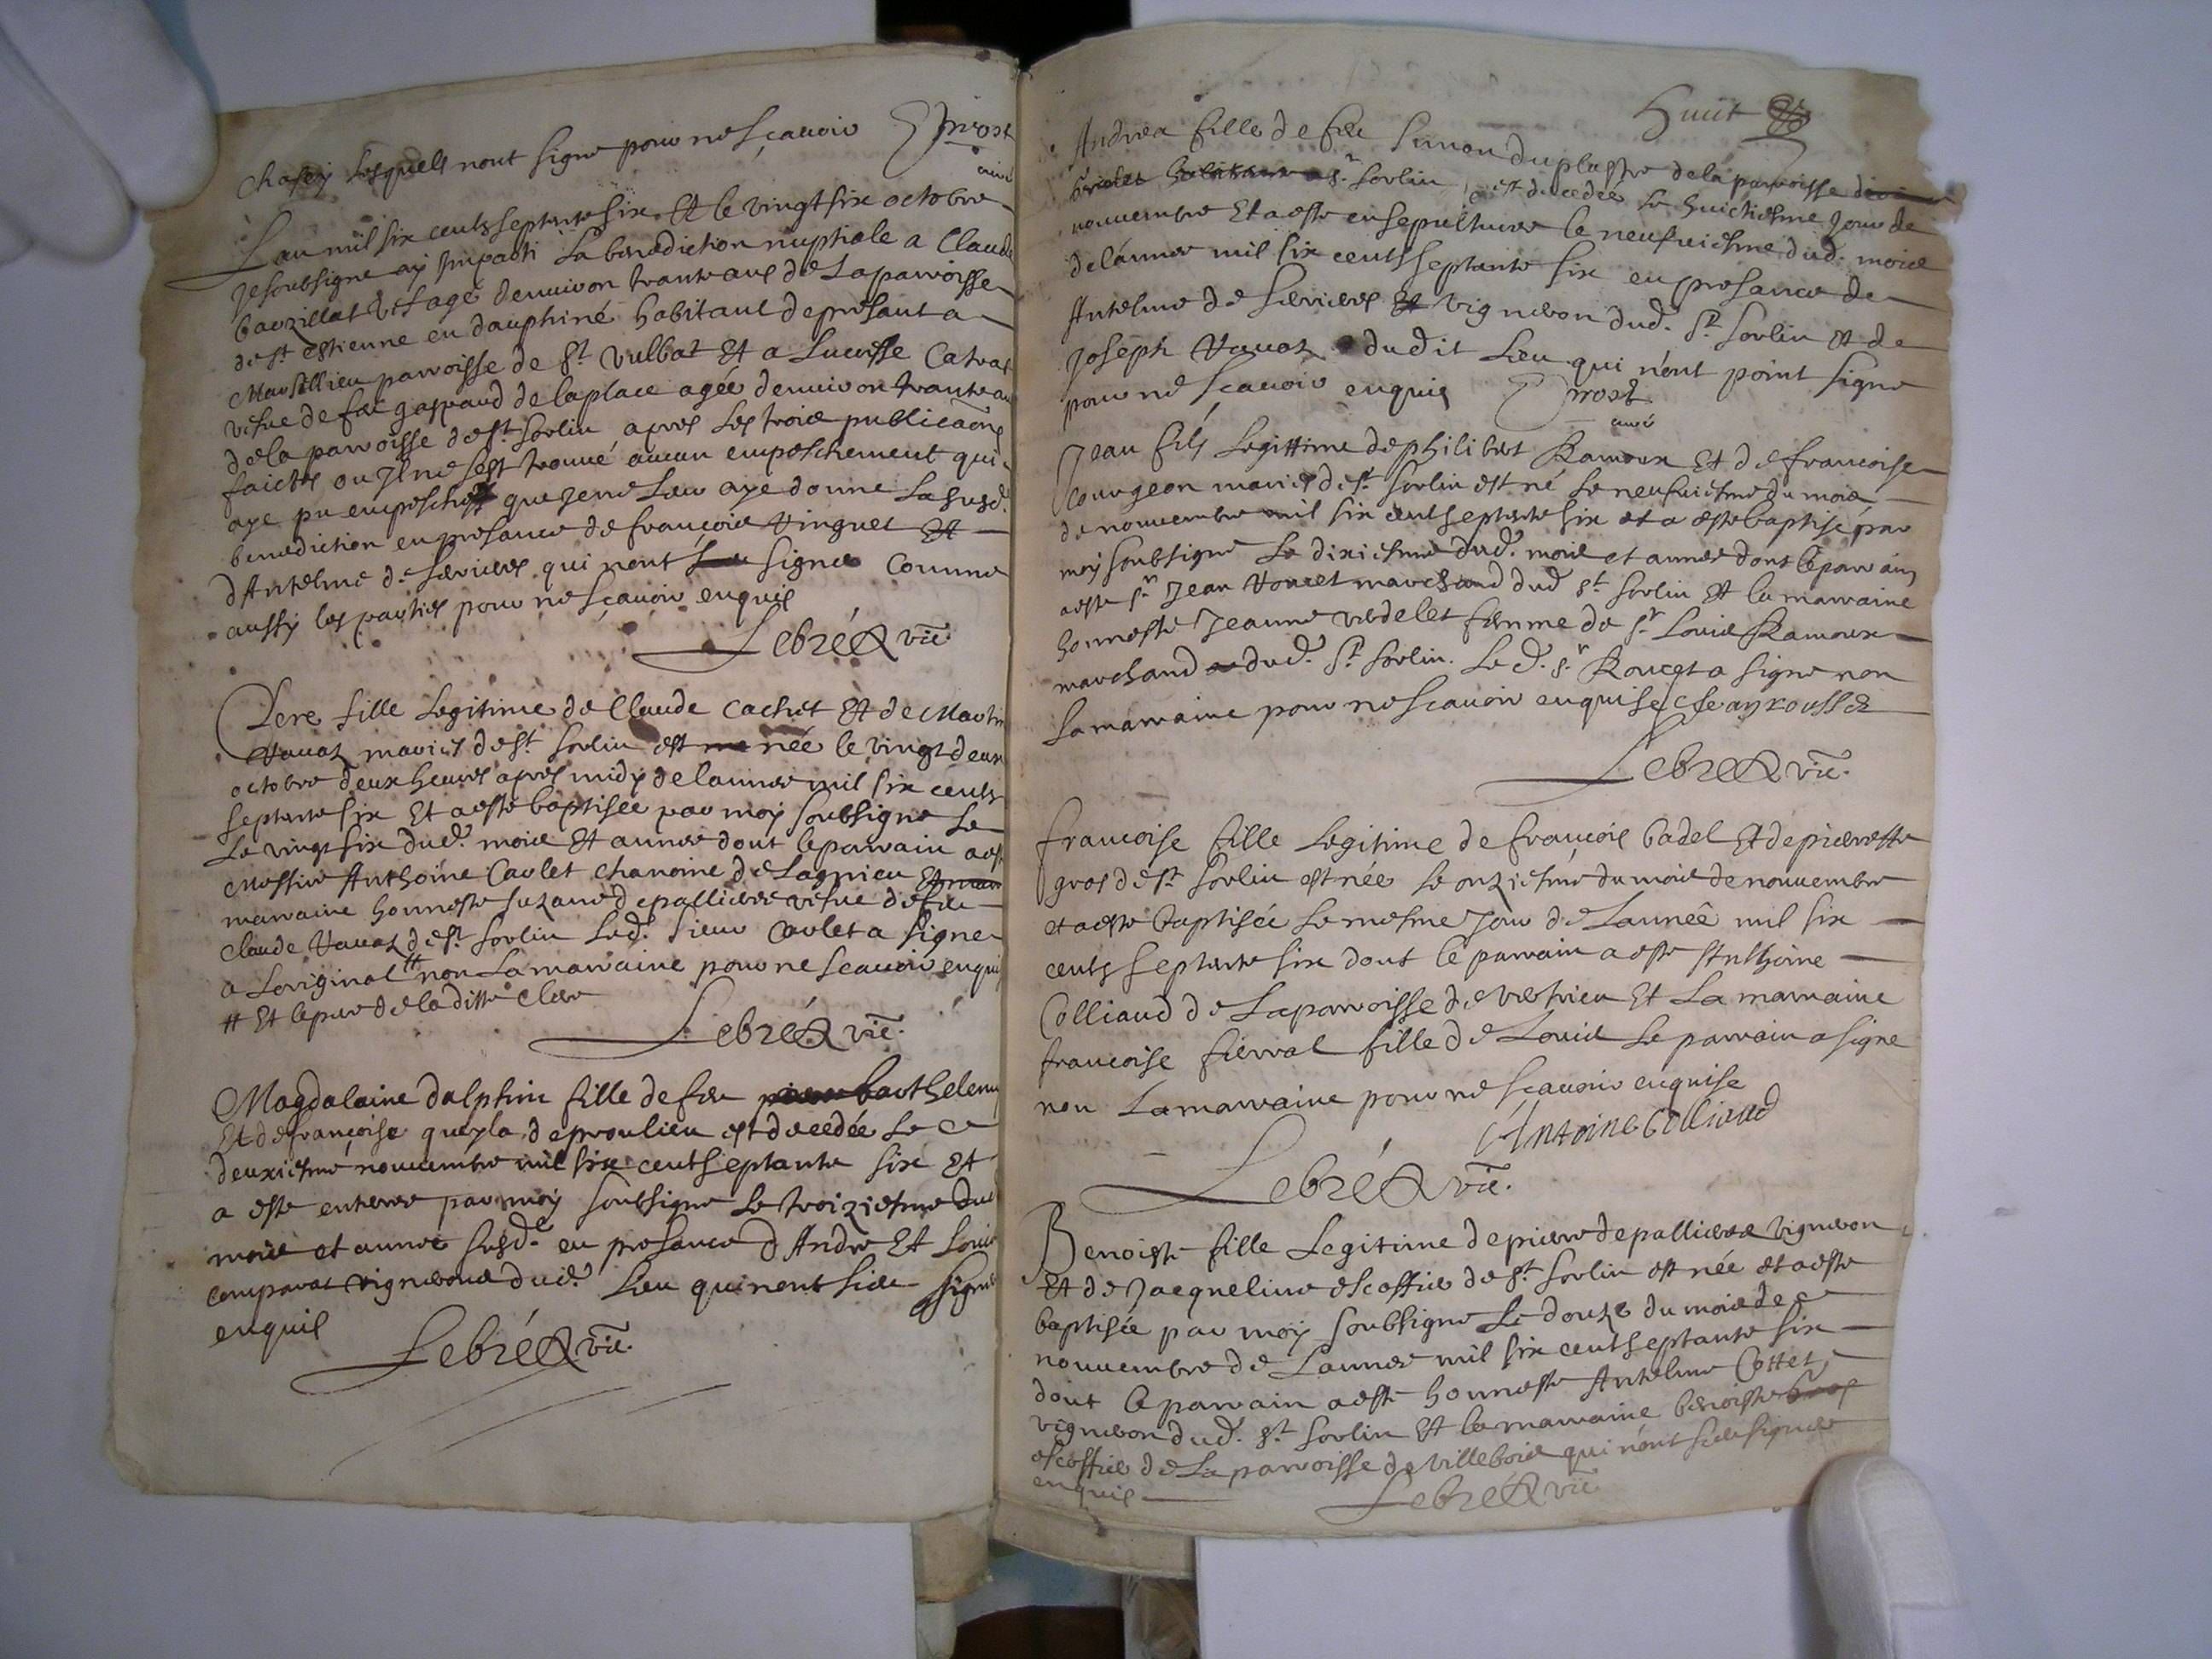 lesquels nont signe pour ne sçavoir Prost
curé
Lan mil six cents septante six Et le vingt six octobre
Je soubsigne ay Imparti La benediction nuptiale a Claude
vefagé denuiron trante ans de La parroisse
de st estienne en dauphiné habitant de presant a
parroisse de St vulbat Et a
vefue de feu gaspard de laplace agée denuiron trante an
de la parroisse de st Sorlin apres Les trois publicaons
faictes ou Il ne sest trouué aucun empeschement qui
aye pu empescher que Je ne Leur aye donne La susd.
benediction en presance de françois vinguet Et
dAntelme de seruieres qui nont signe Comme
aussy les parties pour ne sçauoir enquis
Lebré vic.
Clere fille Legitime de Claude Cachet Et de
Nauaz mariés de st. Sorlin est née le vingt deux
octobre deux heures apres midy de lannee mil six cents
septante six Et a esté baptisée par moy soubsigne Le
Le vingt six dud. mois Et annee dont le parrain a est
Messire Anthoine Carlet Chanoine de Lagnieu
marraine honneste suzane depallieres vefue de feu
Claude Nauaz de st. Sorlin Led. sieur Carlet a signe
a Loriginal # non La marraine pour ne sçauoir enquis
# Et le pere de laditte Clere
Lebré vic.
Magdalaine dalphin fille de feu barthelemy
Et de françoise de proulieu est decedée Le
deuxiesme nouuembre mil six cent septante six Et
a este enterree par moy soubsigne Le troiziesme dud
mois et annee susd. en presance dAndre Et Louis
comparat vignerons dud. Lieu qui nont sceu signer
enquis
Lebré vic.
huit
Andrea fille de feu Simon duplastre de la parroisse
St. Sorlin est decedée Le huictiesme Jour de
nouuembre Et a este ensepulturee le neufuiesme dud. mois
de lannee mil six cents septante six en presance de
Antelme de seruieres Et vigneron dud. St. Sorlin et de
Joseph Nauaz dudit Lieu qui nont point signe
pour ne sçauoir enquis Prost
curé
Jean fils Legittime de philibert Ramoux Et de francoise
Courgeon mariés de st. Sorlin est né Le neufuiesme du mois
de nouuembre mil six cent septante six et a este baptisé par
moy soubsigne Le dixiesme dud. mois et annee dont le parrain
a este sr. Jean marchand dud St. Sorlin Et la marraine
honneste Jeanne verdelet femme de sr. Louis Ramoux
marchand dud. St. Sorlin. Le d. sr. Roucet a signe non
La marraine pour ne scauoir enquise
Lebré vic.
francoise fille Legitime de françois badel Et de pierrette
gros de st. Sorlin est née Le onziesme du mois de nouuembre
et a este baptisée Le mesme Jour de Lannée mil six
cents septante six dont le parrain a este Anthoine
Colliaud de La parroisse de vertrieu Et La marraine
francoise fierral fille de Louis Le parrain a signe
non La marraine pour ne scauoir enquise
Antoine Colliaud
Lebré vic.
Benoiste fille Legitime de pierre depallieres vigneron
Et de Jacqueline escoffier de St. Sorlin est née et a este
baptisée par moy soubsigne Le douze du mois de
nouuembre de Lannee mil six cent septante six
dont le parrain a este honneste Antelme Cottet
vigneron dud. St. Sorlin Et la marraine benoiste
escoffier de La parroisse de villebois qui nont sceu signer
enquis
Lebré vic.